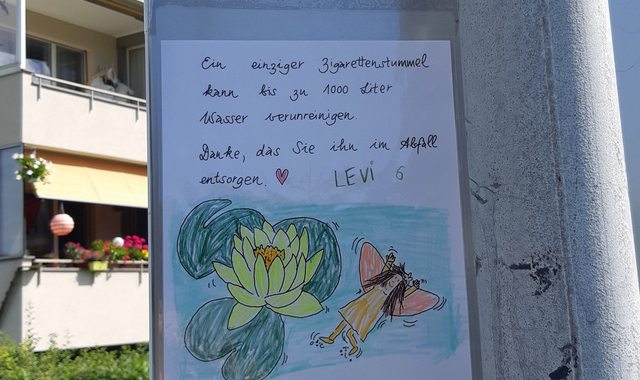 Ein einziger Zigarettenstummel
kann bis zu 1000 Liter
Wasser verunreinigen.
Danke, das Sie ihn im Abfall
entsorgen. ♥ LEVi 6